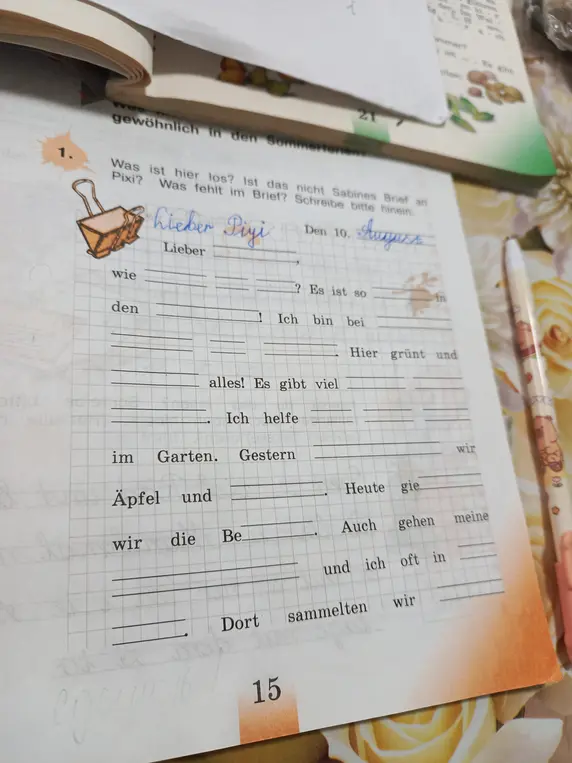 21
gewöhnlich in den Sommerferien?
1.
Was ist hier los? Ist das nicht Sabines Brief an
Pixi? Was fehlt im Brief? Schreibe bitte hinein.
Lieber Pixi
Den 10. August
Lieber ,
wie ? Es ist so in
den ! Ich bin bei
. Hier grünt und
alles! Es gibt viel
. Ich helfe
im Garten. Gestern wir
Äpfel und . Heute gie
wir die Be . Auch gehen meine
und ich oft in
. Dort sammelten wir
15